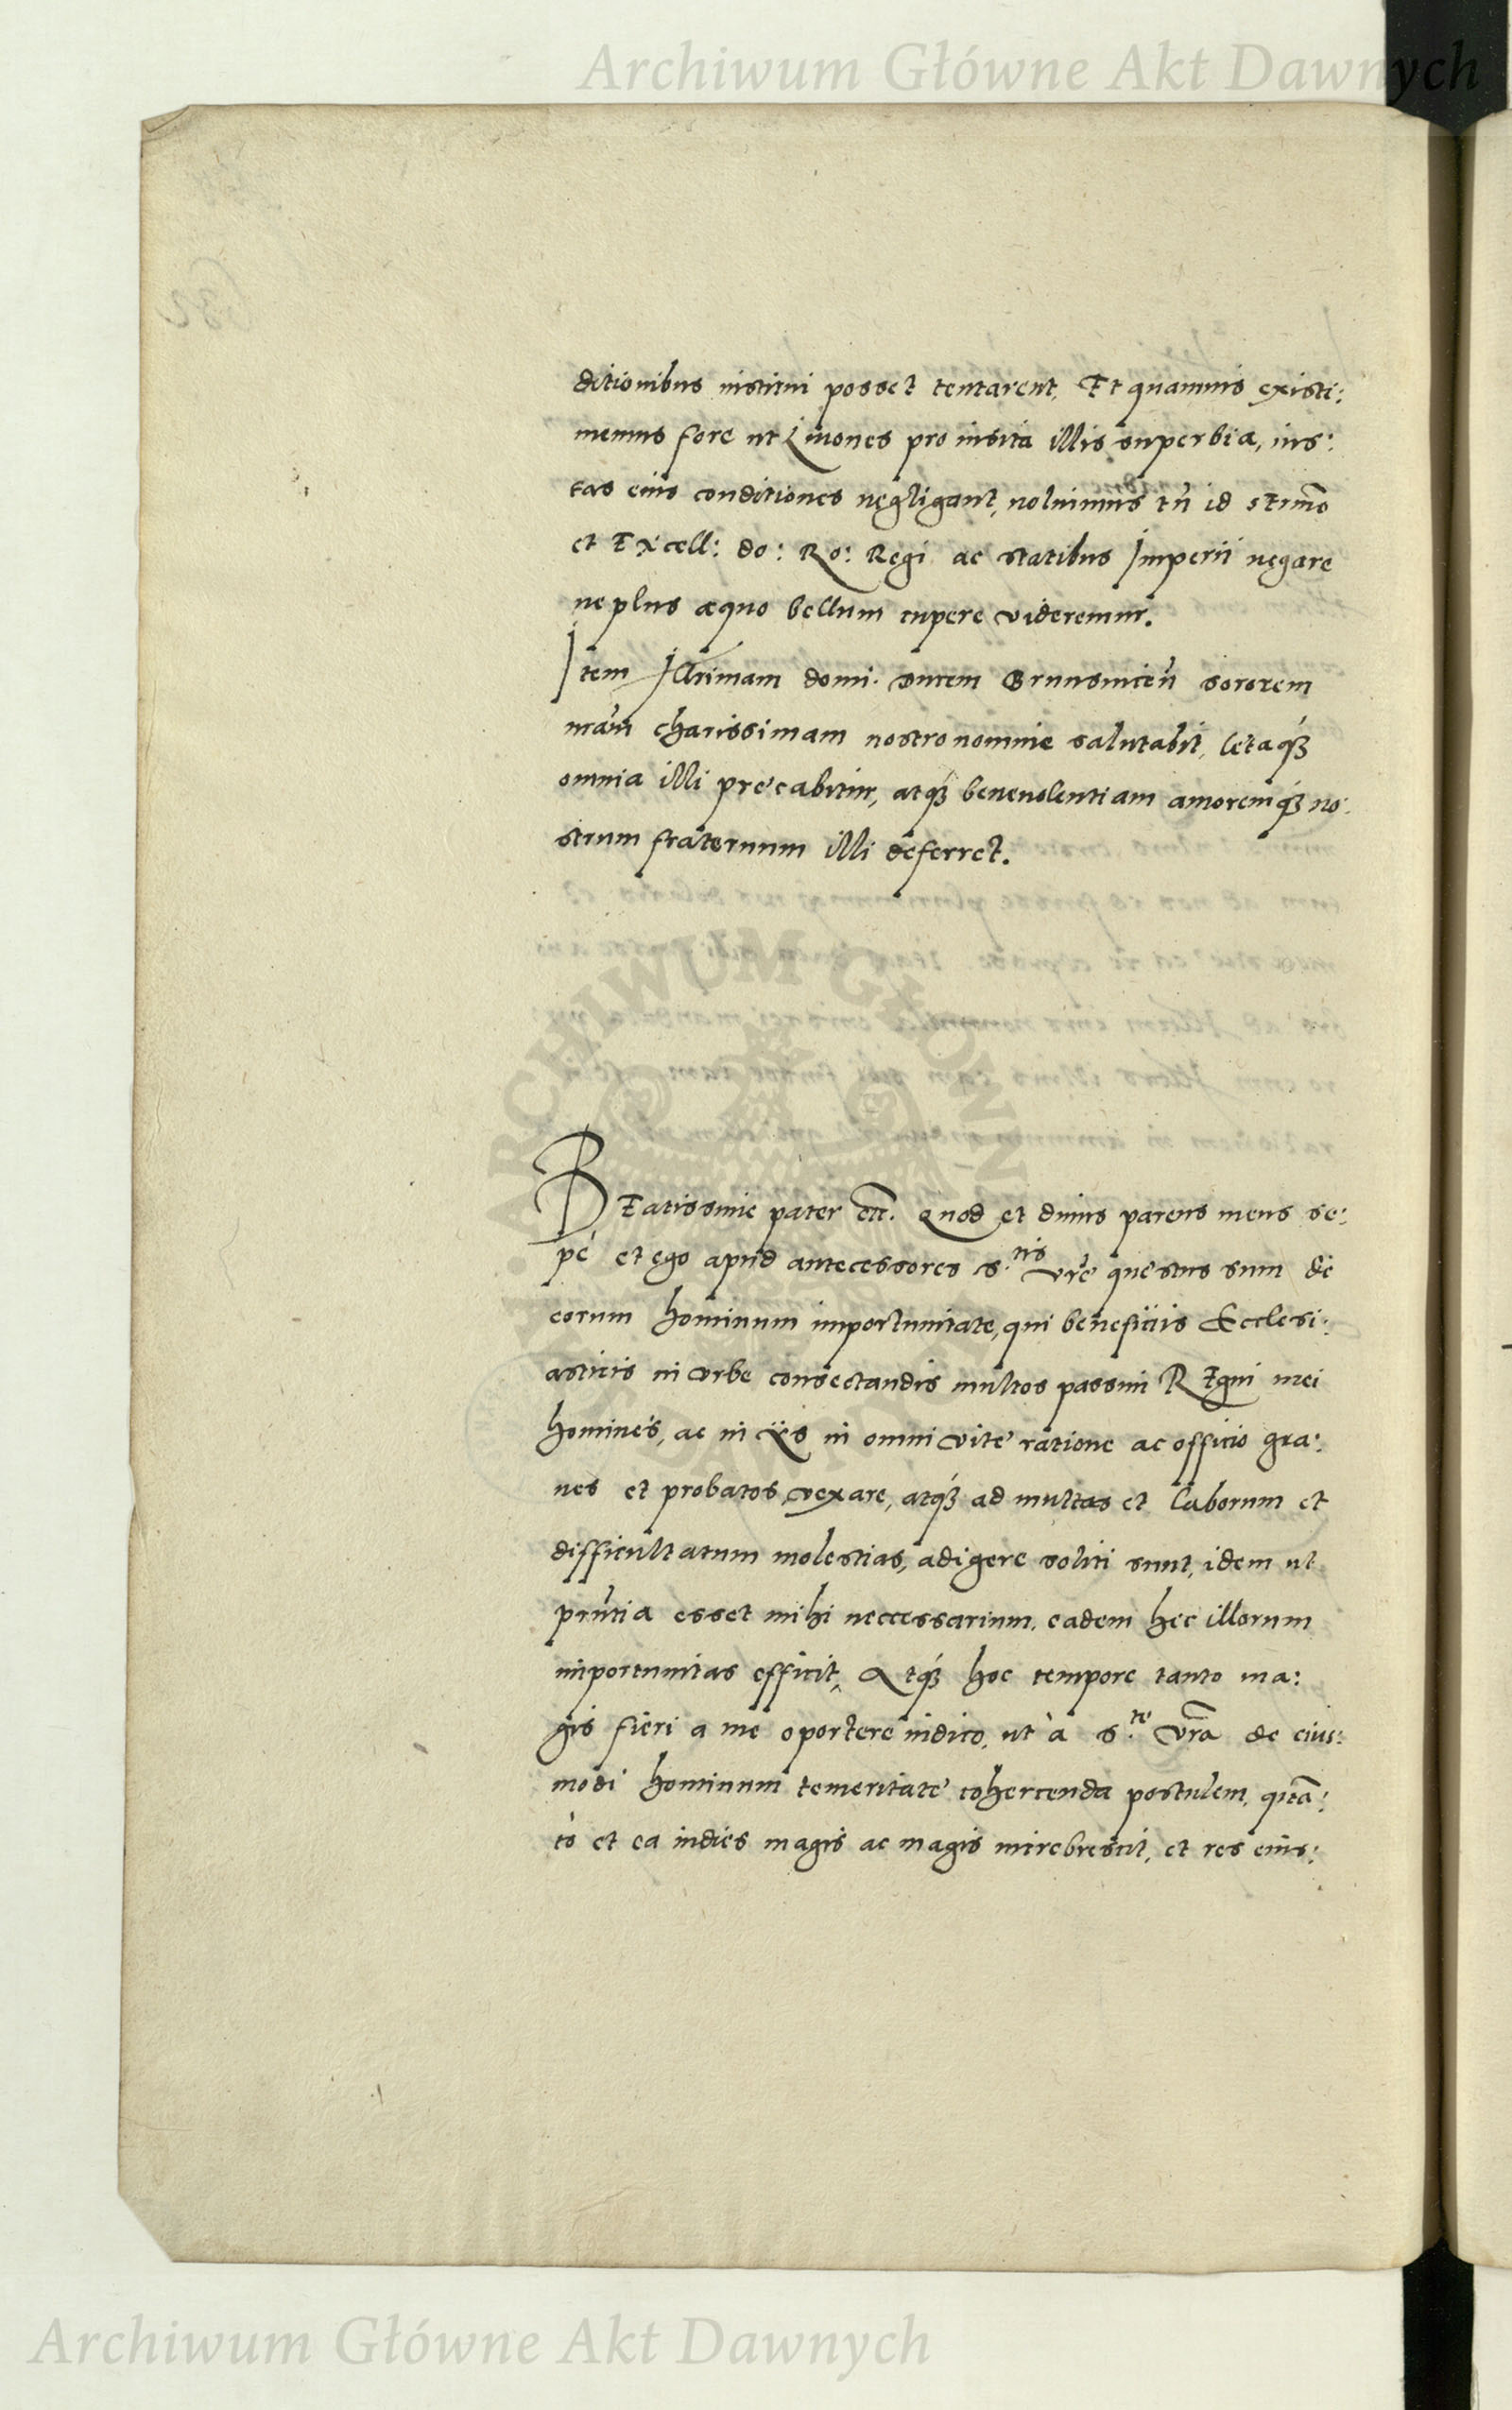 Archiwum Główne Akt Dawnych
ditionibus institui posset tentarent, Et quamuis existi:
memus fore ut Liuones pro insita illis superbia, ius:
tas eius conditiones negligant, noluimus tñ id sermo
et Excell: do: Ro: Regi ac statibus Imperii negare
ne plus æquo bellum cupere videremur.
Item Illrimam domi. ducem Brunsuiceñ sororem
nrãm charissimam nostro nomine salutabit, letaqȝ
omnia illi precabitur, atqȝ beneuolentiam amoremqȝ no:
strum fraternum illi deferret.
BEatissime pater etc. Quod et diuus parens meus se:
pe et ego apud antecessores s.tis vrẽ questus sum de
eorum hominum importunitate, qui beneficiis Ecclesi:
asticis in vrbe consectandis multos passim REgni mei
homines, ac in ijs in omni vite ratione ac officio gra:
ues et probatos, vexare, atqȝ ad multas et laborum et
difficultatum molestias, adigere soliti sunt, idem ut
prñtia esset mihi neccessarium, eadem hec illorum
importunitas efficit, Atqȝ hoc tempore tanto ma:
gis fieri a me oportere iudico, ut à s.te vrã de eius:
modi hominum temeritate cohercenda postulem, quã:
to et ea indies magis ac magis increbrescit, et res eius:
Archiwum Główne Akt Dawnych